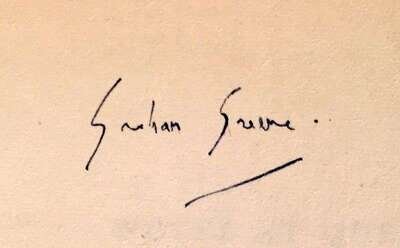 Graham Greene.